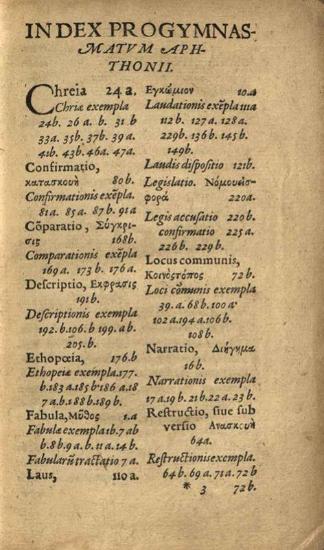 INDEX PROGYMNAS-
MATVM APH-
THONII.
Chreia 24 a.
Chriæ exempla
24b. 26 a. b. 31 b
33a. 35b. 37b. 39 a.
41b. 43b. 46a. 47a.
Confirmatio,
κατασκουὴ 80b.
Confirmationis exẽpla.
81a. 85a. 87b. 91a
Cõparatio, Σύγκρι-
σις 168b.
Comparationis exẽpla
169 a. 173 b. 176 a.
Descriptio, Εκφρασις
191b.
Descriptionis exempla
192.b.106.b 199.ab.
205.b.
Ethopœia, 176.b
Ethopeiæ exempla.177.
b.183 a.185b186 a.18
7 a.b.188.b189 b.
Fabula, Μῦθος 1.a
Fabulæ exempla 1b.7 ab
b.8b.9 a.b. 11 a.14 b.
Fabularũ tractatio 7 a.
Laus, 110 a.
Εγκώμιον 10.a
Laudationis exẽpla 111a
112 b. 127 a. 128 a.
229 b. 136 b. 145 b.
149b.
Laudis dispositio 121b.
Legislatio. Νόμουεἰσ-
φορά 220a.
Legis accusatio 220 b.
confirmatio 225 a.
226 b. 229 b.
Locus communis,
Κοινὸςτόπος 72 b.
Loci cõmunis exempla
39.a. 68 b. 100 a
102 a.194 a.106 b.
108 b.
Narratio, Διήγημα
16 b.
Narrationis exempla
17 a.19 b.21 b.22 a.23 b.
Restructio, siue sub
versio Ανασκουὴ
64a.
Restructionis exempla.
64 b. 69 a. 71 a. 72 b
* 3 72 b.